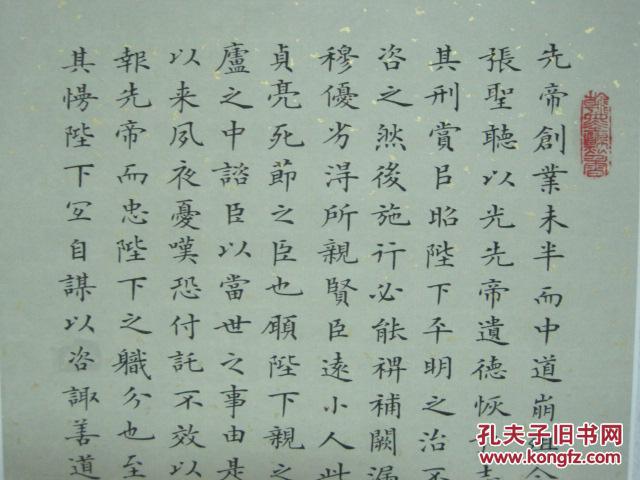 先帝創業未半而中道崩殂今
張聖聽以光先帝遺德恢志
其刑賞㠯昭陛下平明之治不
咨之然後施行必能裨補闕漏
穆優劣得所親賢臣遠小人此
貞亮死節之臣也願陛下親之
廬之中諮臣以當世之事由是
以来夙夜憂嘆恐付託不效以
報先帝而忠陛下之職分也至
其慢陛下宜自謀以咨諏善道
孔夫子旧书网
www.kongfz.com